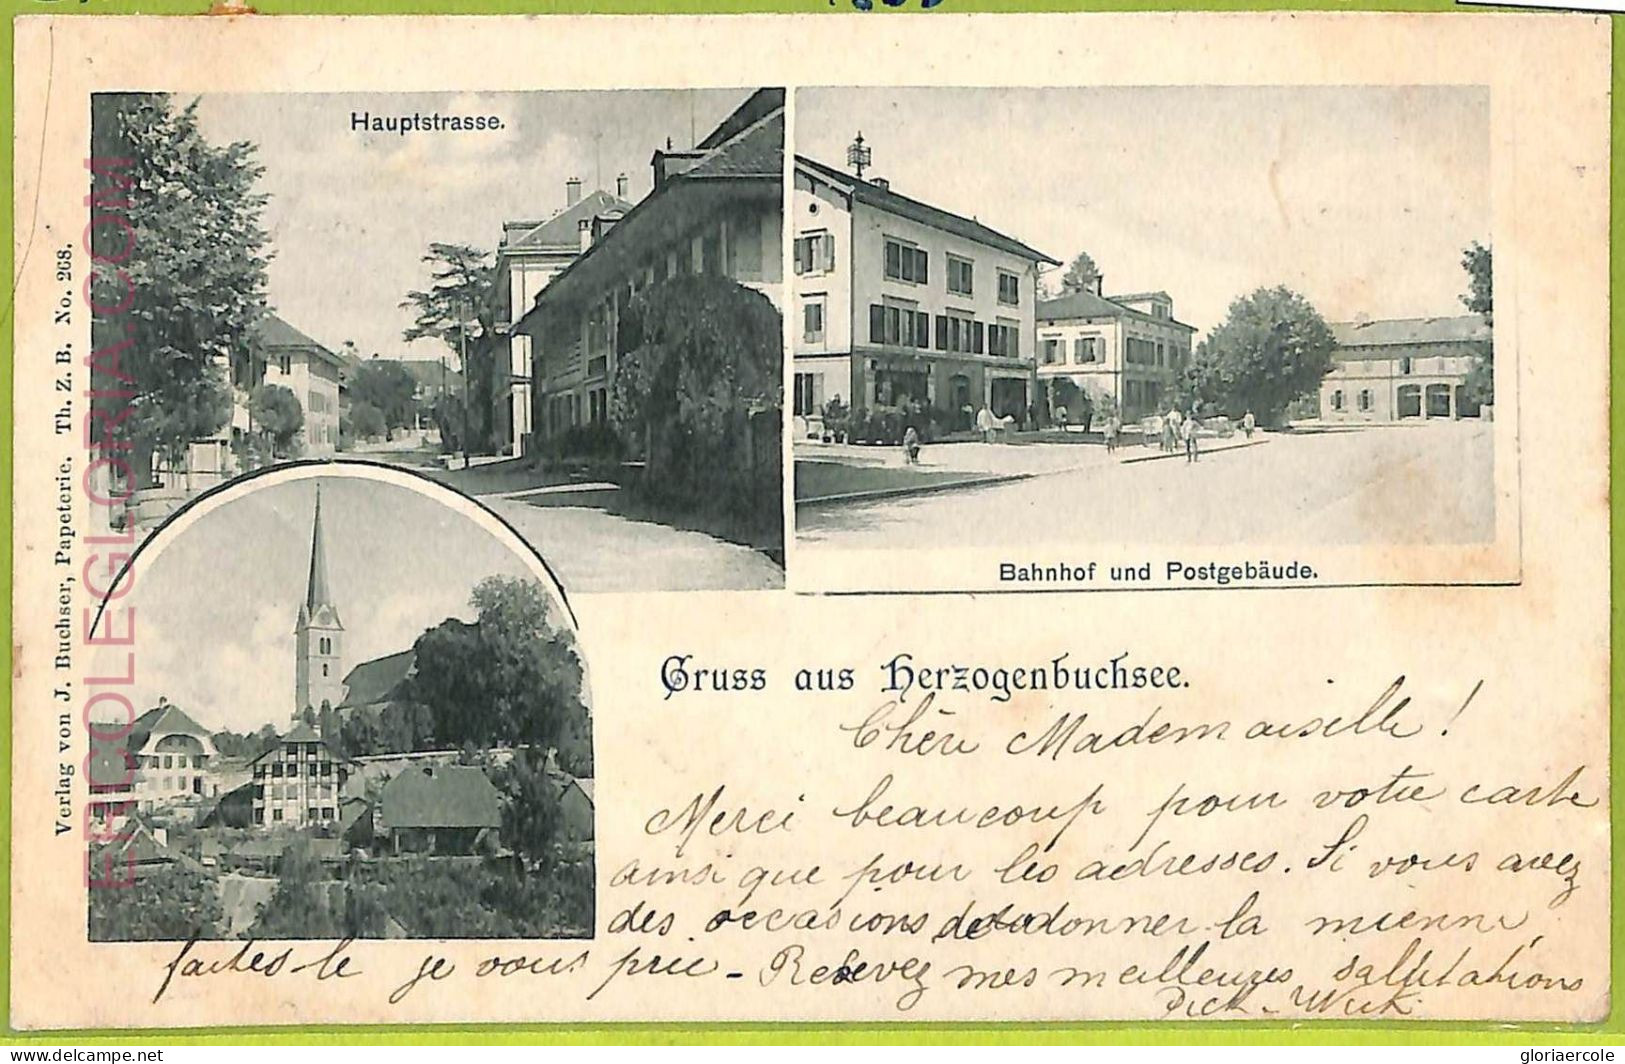 Hauptstrasse.
Bahnhof und Postgebäude.
Verlag von J. Buchser, Papeterie. Th. Z. B. No. 268.
ERCOLEGLORIA.COM
Gruss aus Herzogenbuchsee.
Chère Mademoiselle!
Merci beaucoup pour votre carte
ainsi que pour les adresses. Si vous avez
des occasions donner la mienne,
faites-le je vous prie - Recevez mes meilleures salutations
delcampe.net
gloriaercole